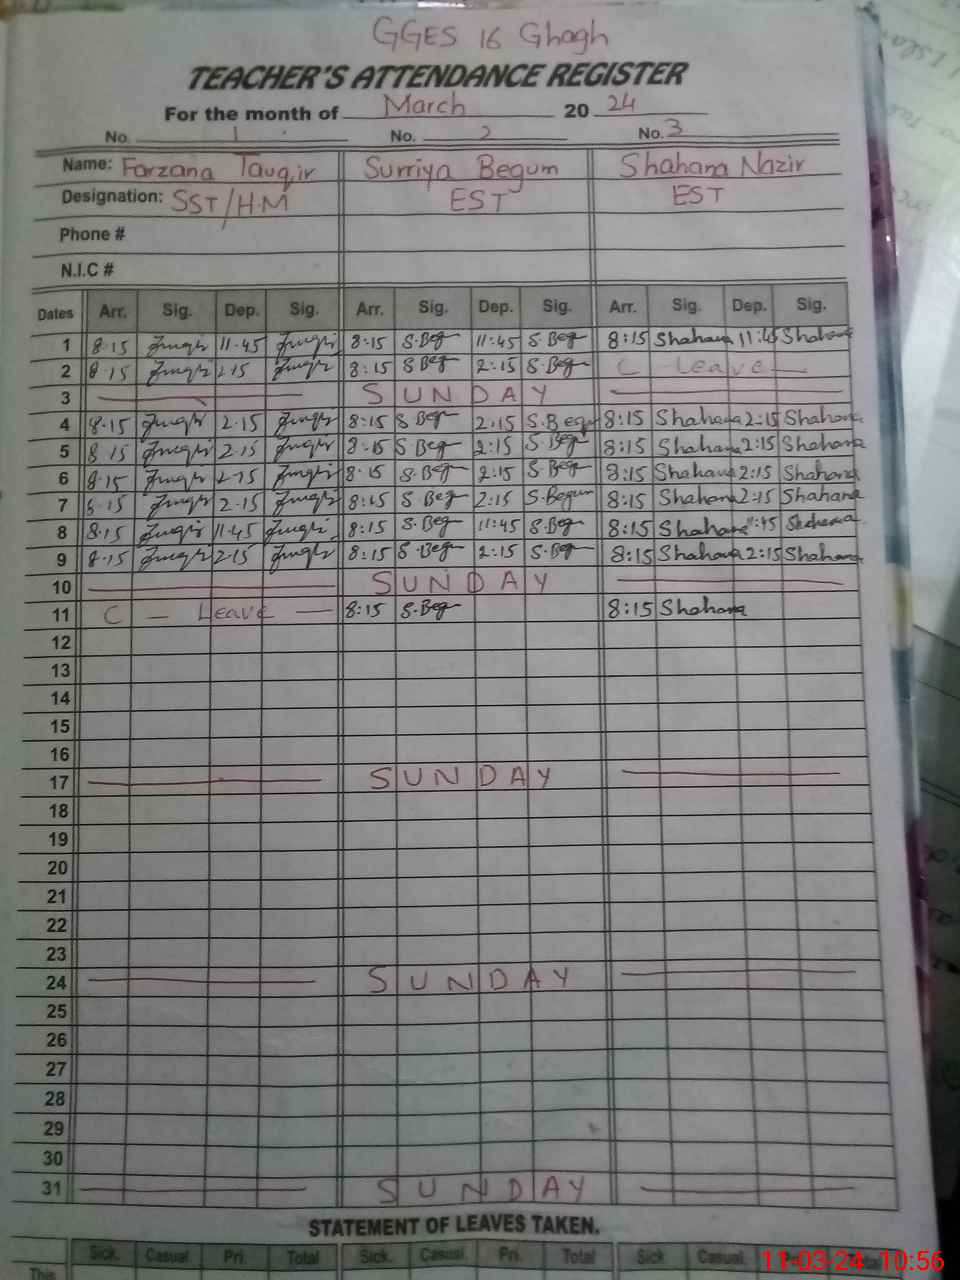 GGES 16 Ghagh
TEACHER'S ATTENDANCE REGISTER
For the month of March 2024
No. 1 No. 2 No. 3
Name: Farzana Tauqir Surriya Begum Shahana Nazir
Designation: SST/H.M EST EST
Phone #
N.I.C #
Dates Arr. Sig. Dep. Sig. Arr. Sig. Dep. Sig. Arr. Sig. Dep. Sig.
1 8.15 11.45 8:15 S.Beg 11:45 S.Beg 8:15 Shahana 11:45 Shahana
2 8.15 2.15 8:15 S.Beg 2:15 S.Beg C Leave
3 SUNDAY
4 8.15 2.15 8:15 S Beg 2:15 S.Begum 8:15 Shahana 2:15 Shahana
5 8.15 2.15 8:15 S.Beg 2:15 S.Beg 8:15 Shahana 2:15 Shahana
6 8.15 2.15 8:15 S.Beg 2:15 S.Beg 8:15 Shahana 2:15 Shahana
7 8.15 2.15 8:15 S.Beg 2:15 S.Begum 8:15 Shahana 2:15 Shahana
8 8.15 11.45 8:15 S.Beg 11:45 S.Beg 8:15 Shahana 11:45 Shahana
9 8.15 2.15 8:15 S.Beg 2:15 S.Beg 8:15 Shahana 2:15 Shahana
10 SUNDAY
11 C — Leave — 8:15 S.Beg 8:15 Shahana
12
13
14
15
16
17 SUNDAY
18
19
20
21
22
23
24 SUNDAY
25
26
27
28
29
30
31 SUNDAY
STATEMENT OF LEAVES TAKEN.
Sick. Casual. Pri. Total Sick. Casual. Pri. Total Sick Casual.
This
11-03-24 10:56